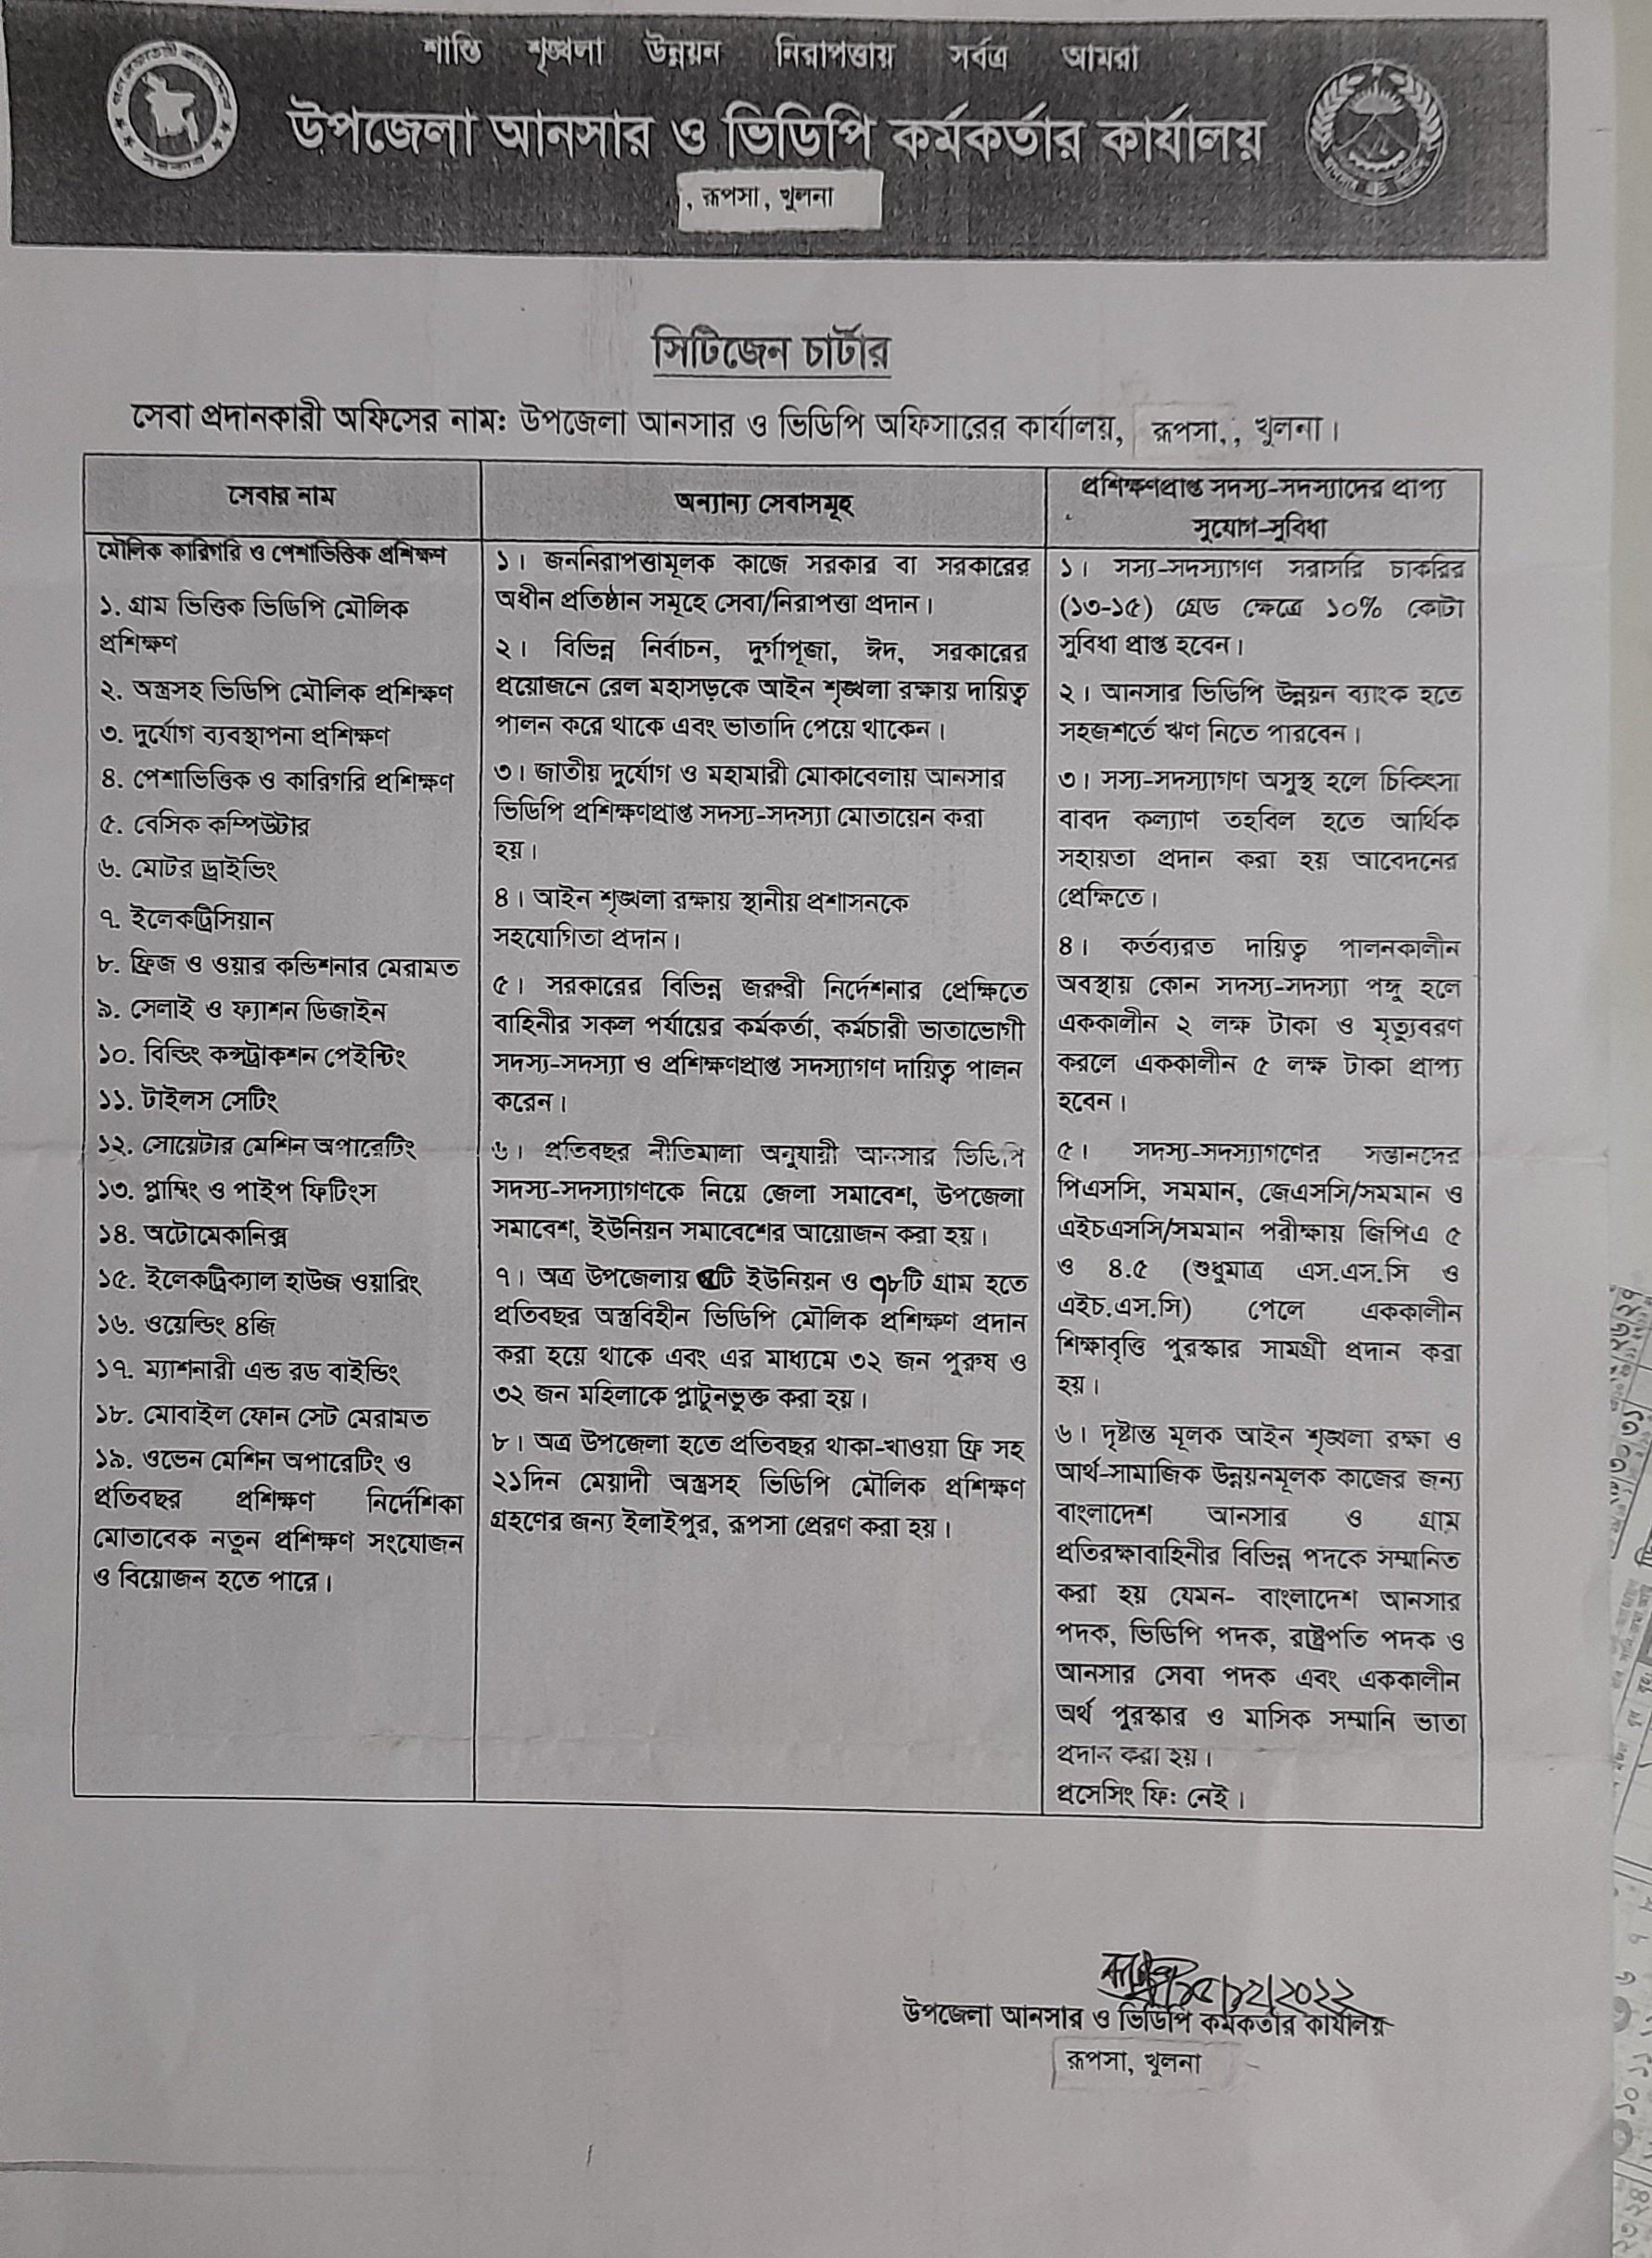 শান্তি শৃঙ্খলা উন্নয়ন নিরাপত্তায় সর্বত্র আমরা
উপজেলা আনসার ও ভিডিপি কর্মকর্তার কার্যালয়
, রূপসা, খুলনা
সিটিজেন চার্টার
সেবা প্রদানকারী অফিসের নাম: উপজেলা আনসার ও ভিডিপি অফিসারের কার্যালয়, রূপসা,, খুলনা।
সেবার নাম
মৌলিক কারিগরি ও পেশাভিত্তিক প্রশিক্ষণ
১. গ্রাম ভিত্তিক ভিডিপি মৌলিক
প্রশিক্ষণ
২. অস্ত্রসহ ভিডিপি মৌলিক প্রশিক্ষণ
৩. দুর্যোগ ব্যবস্থাপনা প্রশিক্ষণ
৪. পেশাভিত্তিক ও কারিগরি প্রশিক্ষণ
৫. বেসিক কম্পিউটার
৬. মোটর ড্রাইভিং
৭. ইলেকট্রিসিয়ান
৮. ফ্রিজ ও ওয়ার কন্ডিশনার মেরামত
৯. সেলাই ও ফ্যাশন ডিজাইন
১০. বিল্ডিং কন্সট্রাকশন পেইন্টিং
১১. টাইলস সেটিং
১২. সোয়েটার মেশিন অপারেটিং
১৩. প্লাম্বিং ও পাইপ ফিটিংস
১৪. অটোমেকানিক্স
১৫. ইলেকট্রিক্যাল হাউজ ওয়ারিং
১৬. ওয়েল্ডিং ৪জি
১৭. ম্যাশনারী এন্ড রড বাইন্ডিং
১৮. মোবাইল ফোন সেট মেরামত
১৯. ওভেন মেশিন অপারেটিং ও
প্রতিবছর প্রশিক্ষণ নির্দেশিকা
মোতাবেক নতুন প্রশিক্ষণ সংযোজন
ও বিয়োজন হতে পারে।
অন্যান্য সেবাসমূহ
১। জননিরাপত্তামূলক কাজে সরকার বা সরকারের
অধীন প্রতিষ্ঠান সমূহে সেবা/নিরাপত্তা প্রদান।
২। বিভিন্ন নির্বাচন, দুর্গাপূজা, ঈদ, সরকারের
প্রয়োজনে রেল মহাসড়কে আইন শৃঙ্খলা রক্ষায় দায়িত্ব
পালন করে থাকে এবং ভাতাদি পেয়ে থাকেন।
৩। জাতীয় দুর্যোগ ও মহামারী মোকাবেলায় আনসার
ভিডিপি প্রশিক্ষণপ্রাপ্ত সদস্য-সদস্যা মোতায়েন করা
হয়।
৪। আইন শৃঙ্খলা রক্ষায় স্থানীয় প্রশাসনকে
সহযোগিতা প্রদান।
৫। সরকারের বিভিন্ন জরুরী নির্দেশনার প্রেক্ষিতে
বাহিনীর সকল পর্যায়ের কর্মকর্তা, কর্মচারী ভাতাভোগী
সদস্য-সদস্যা ও প্রশিক্ষণপ্রাপ্ত সদস্যাগণ দায়িত্ব পালন
করেন।
৬। প্রতিবছর নীতিমালা অনুযায়ী আনসার ভিডিপি
সদস্য-সদস্যাগণকে নিয়ে জেলা সমাবেশ, উপজেলা
সমাবেশ, ইউনিয়ন সমাবেশের আয়োজন করা হয়।
৭। অত্র উপজেলায় ৫টি ইউনিয়ন ও ৭৮টি গ্রাম হতে
প্রতিবছর অস্ত্রবিহীন ভিডিপি মৌলিক প্রশিক্ষণ প্রদান
করা হয়ে থাকে এবং এর মাধ্যমে ৩২ জন পুরুষ ও
৩২ জন মহিলাকে প্লাটুনভুক্ত করা হয়।
৮। অত্র উপজেলা হতে প্রতিবছর থাকা-খাওয়া ফ্রি সহ
২১দিন মেয়াদী অস্ত্রসহ ভিডিপি মৌলিক প্রশিক্ষণ
গ্রহণের জন্য ইলাইপুর, রূপসা প্রেরণ করা হয়।
প্রশিক্ষণপ্রাপ্ত সদস্য-সদস্যাদের প্রাপ্য
সুযোগ-সুবিধা
১। সস্য-সদস্যাগণ সরাসরি চাকরির
(১৩-১৫) গ্রেড ক্ষেত্রে ১০% কোটা
সুবিধা প্রাপ্ত হবেন।
২। আনসার ভিডিপি উন্নয়ন ব্যাংক হতে
সহজশর্তে ঋণ নিতে পারবেন।
৩। সস্য-সদস্যাগণ অসুস্থ হলে চিকিৎসা
বাবদ কল্যাণ তহবিল হতে আর্থিক
সহায়তা প্রদান করা হয় আবেদনের
প্রেক্ষিতে।
৪। কর্তব্যরত দায়িত্ব পালনকালীন
অবস্থায় কোন সদস্য-সদস্যা পঙ্গু হলে
এককালীন ২ লক্ষ টাকা ও মৃত্যুবরণ
করলে এককালীন ৫ লক্ষ টাকা প্রাপ্য
হবেন।
৫। সদস্য-সদস্যাগণের সন্তানদের
পিএসসি, সমমান, জেএসসি/সমমান ও
এইচএসসি/সমমান পরীক্ষায় জিপিএ ৫
ও ৪.৫ (শুধুমাত্র এস.এস.সি ও
এইচ.এস.সি) পেলে এককালীন
শিক্ষাবৃত্তি পুরস্কার সামগ্রী প্রদান করা
হয়।
৬। দৃষ্টান্ত মূলক আইন শৃঙ্খলা রক্ষা ও
আর্থ-সামাজিক উন্নয়নমূলক কাজের জন্য
বাংলাদেশ আনসার ও গ্রাম
প্রতিরক্ষাবাহিনীর বিভিন্ন পদকে সম্মানিত
করা হয় যেমন- বাংলাদেশ আনসার
পদক, ভিডিপি পদক, রাষ্ট্রপতি পদক ও
আনসার সেবা পদক এবং এককালীন
অর্থ পুরস্কার ও মাসিক সম্মানি ভাতা
প্রদান করা হয়।
প্রসেসিং ফি: নেই।
১৫/১২/২০২২
উপজেলা আনসার ও ভিডিপি কর্মকর্তার কার্যালয়
রূপসা, খুলনা